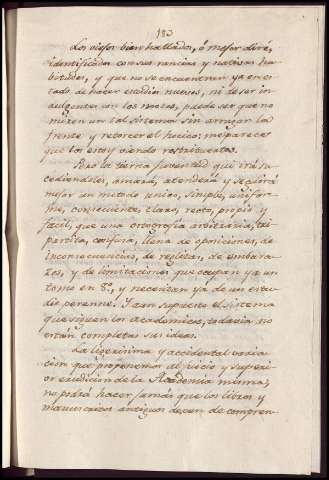 183
Los viejos bien hallados, ó mejor diré,
identificados con sus rancias y nativas ha-
bitudes, y que no se encuentran ya en es-
tado de hacer estudios nuevos, ni de ser in-
dulgentes con los mozos, puede ser que no
miren un tal sistema sin arrugar la
frente y retorcer el hocico: me parece
que los estoy viendo rostrituertos.
Pero la tierna juventud que irá su-
cediendoles, amará, atenderá y seguirá
mejor un metodo unico, simple, unifor-
me, consecuente, claro, recto, propio y
facil, que una ortografia arbitraria, tri-
partita, confusa, llena de oposiciones, de
inconsecuencias, de reglitas, de embara-
zos, y de limitaciones que ocupan ya un
tomo en 8º, y necesitan ya de un estu-
dio perenne. Y aun supuesto el sistema
que siguen los academicos, todavia no
están completas sus ideas.
La ligerisima y accidental varia-
cion que proponemos al juicio y superi-
or erudicion de la Academia misma,
no podrá hacer jamás que los libros y
manuscritos antiguos dejen de compren-